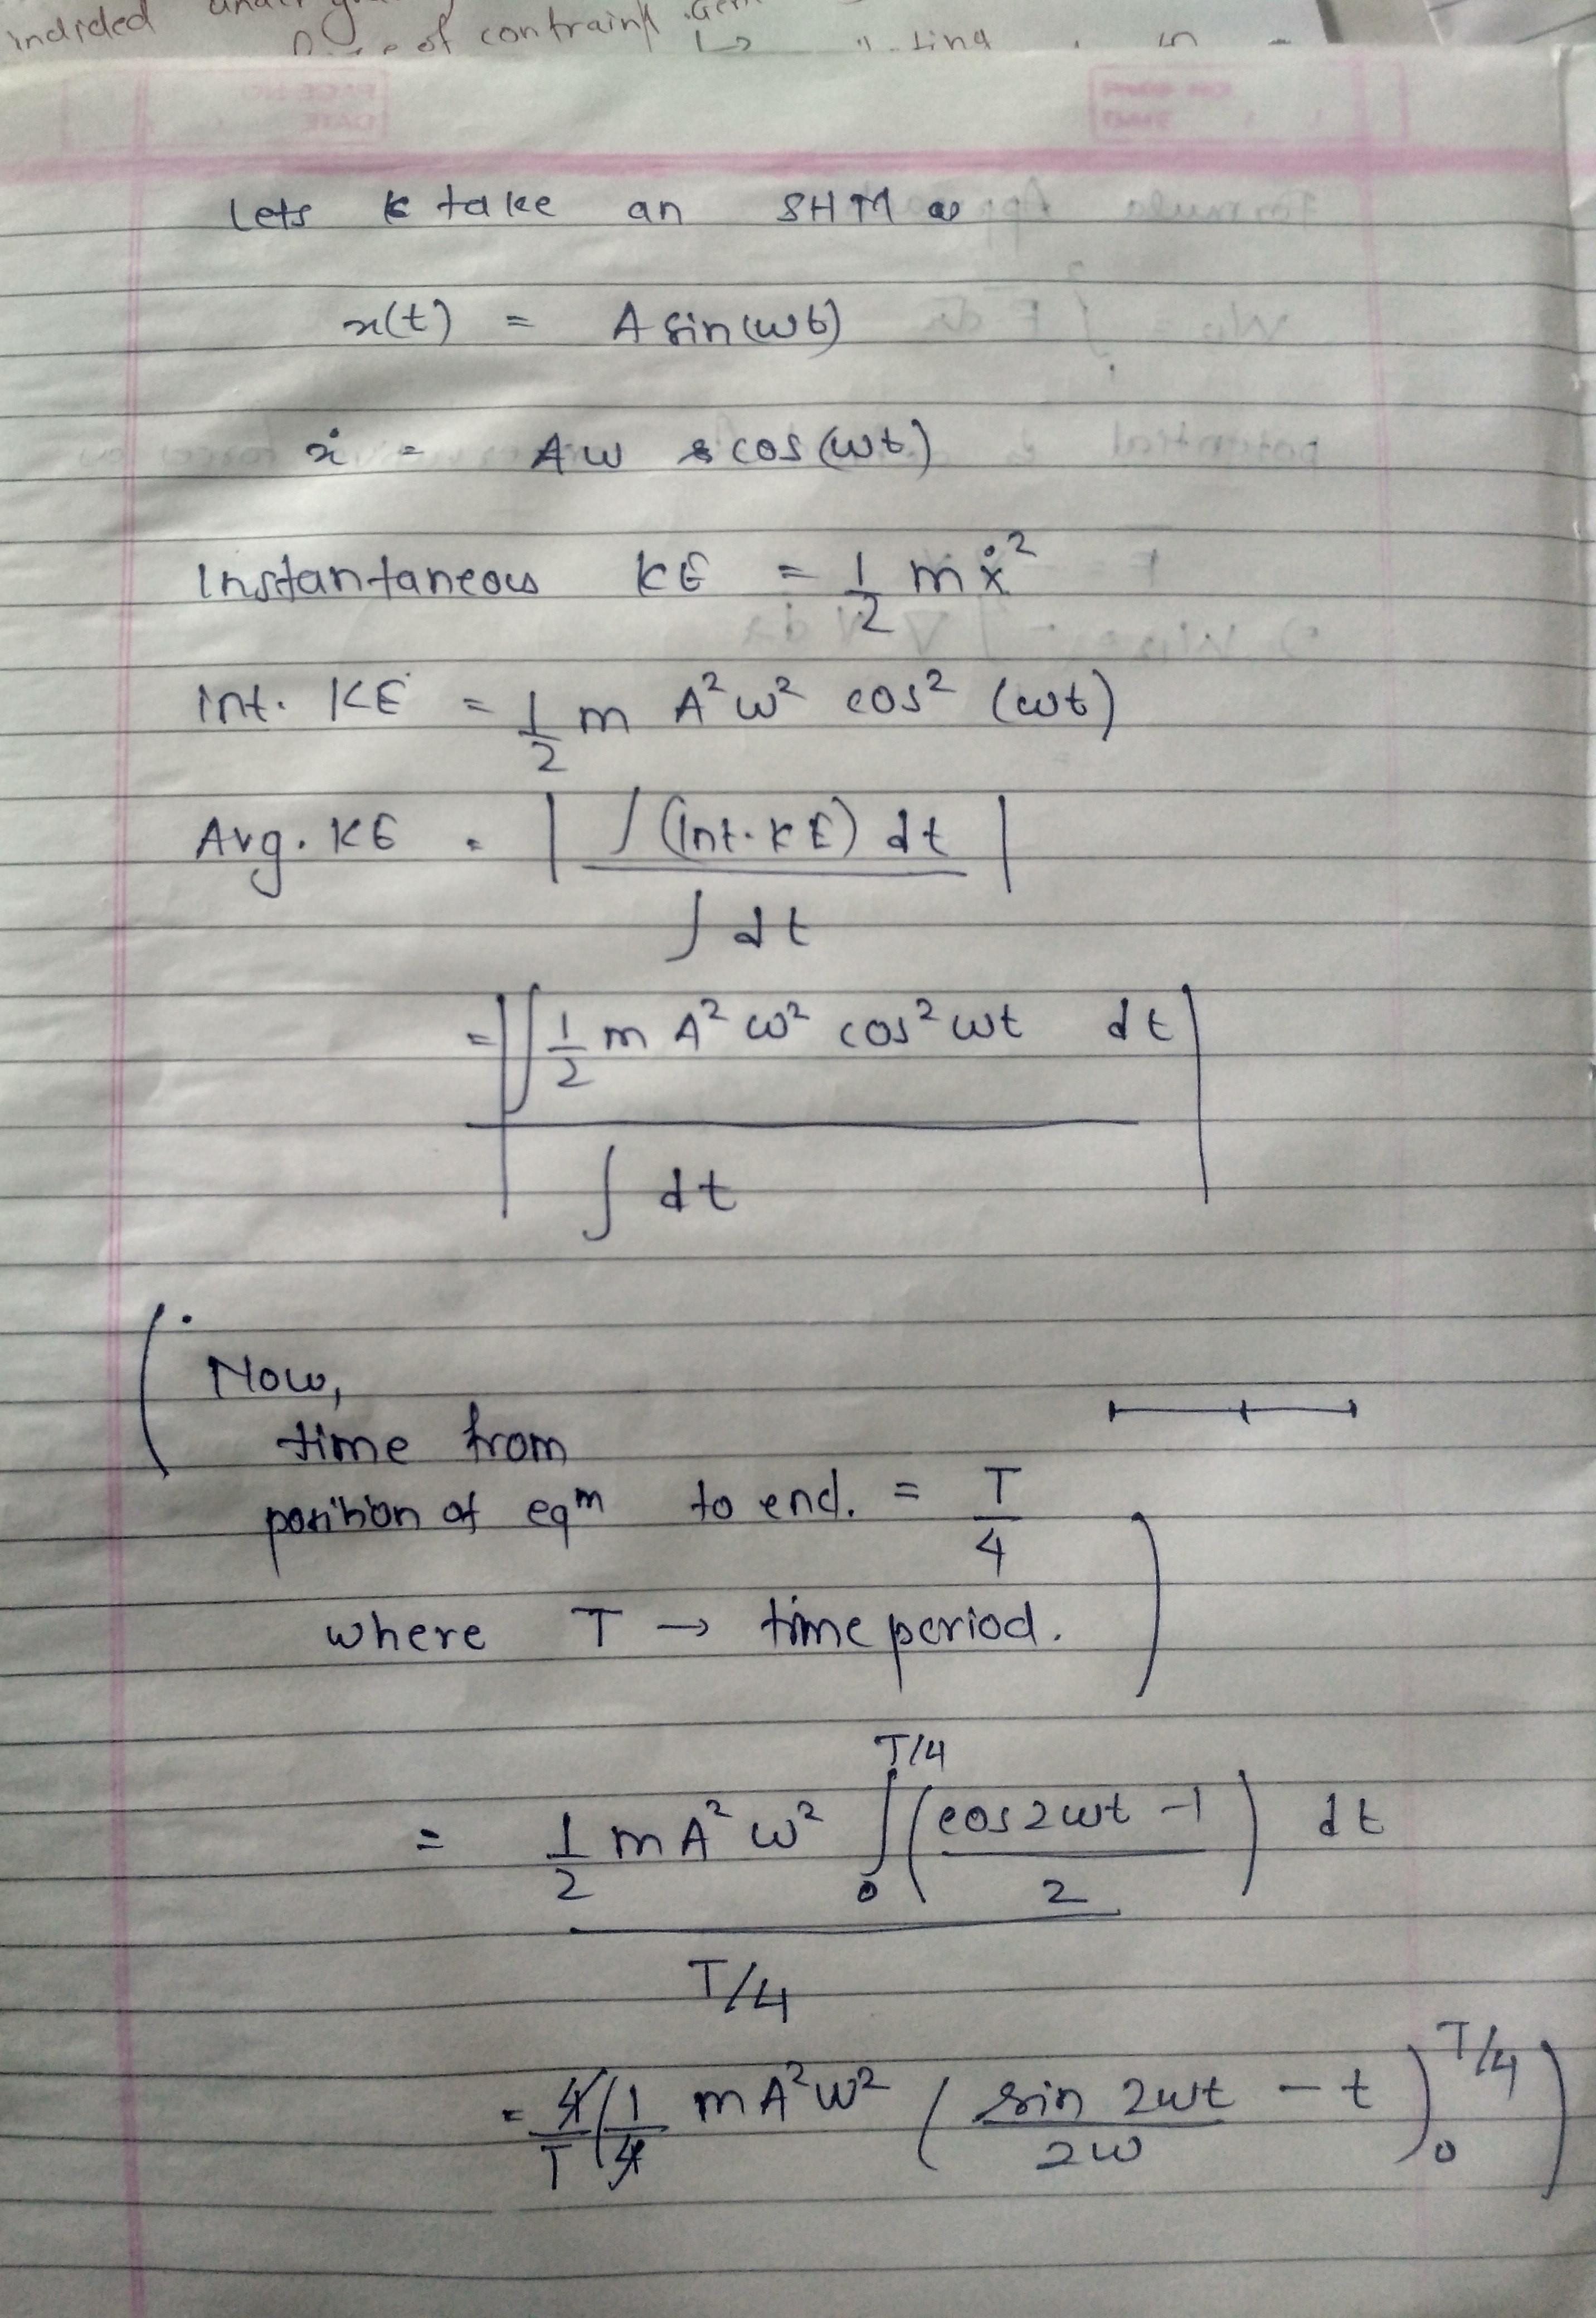 indided under
of contraint
Lets take an SHM as
x(t) = A sin(ωt)
ẋ = Aω cos(ωt)
Instantaneous KE = 1/2 m ẋ²
Int. KE = 1/2 m A² ω² cos² (ωt)
Avg. KE = | ∫ (Int. KE) dt / ∫ dt |
= | ∫ 1/2 m A² ω² cos² ωt dt / ∫ dt |
( Now,
time from
position of eqm to end. = T/4
where T → time period. )
= 1/2 m A² ω² ∫₀^T/4 ( (cos 2ωt - 1) / 2 ) dt / T/4
= 4/T ( 1/4 m A² ω² ( sin 2ωt / 2ω - t )₀^T/4 )